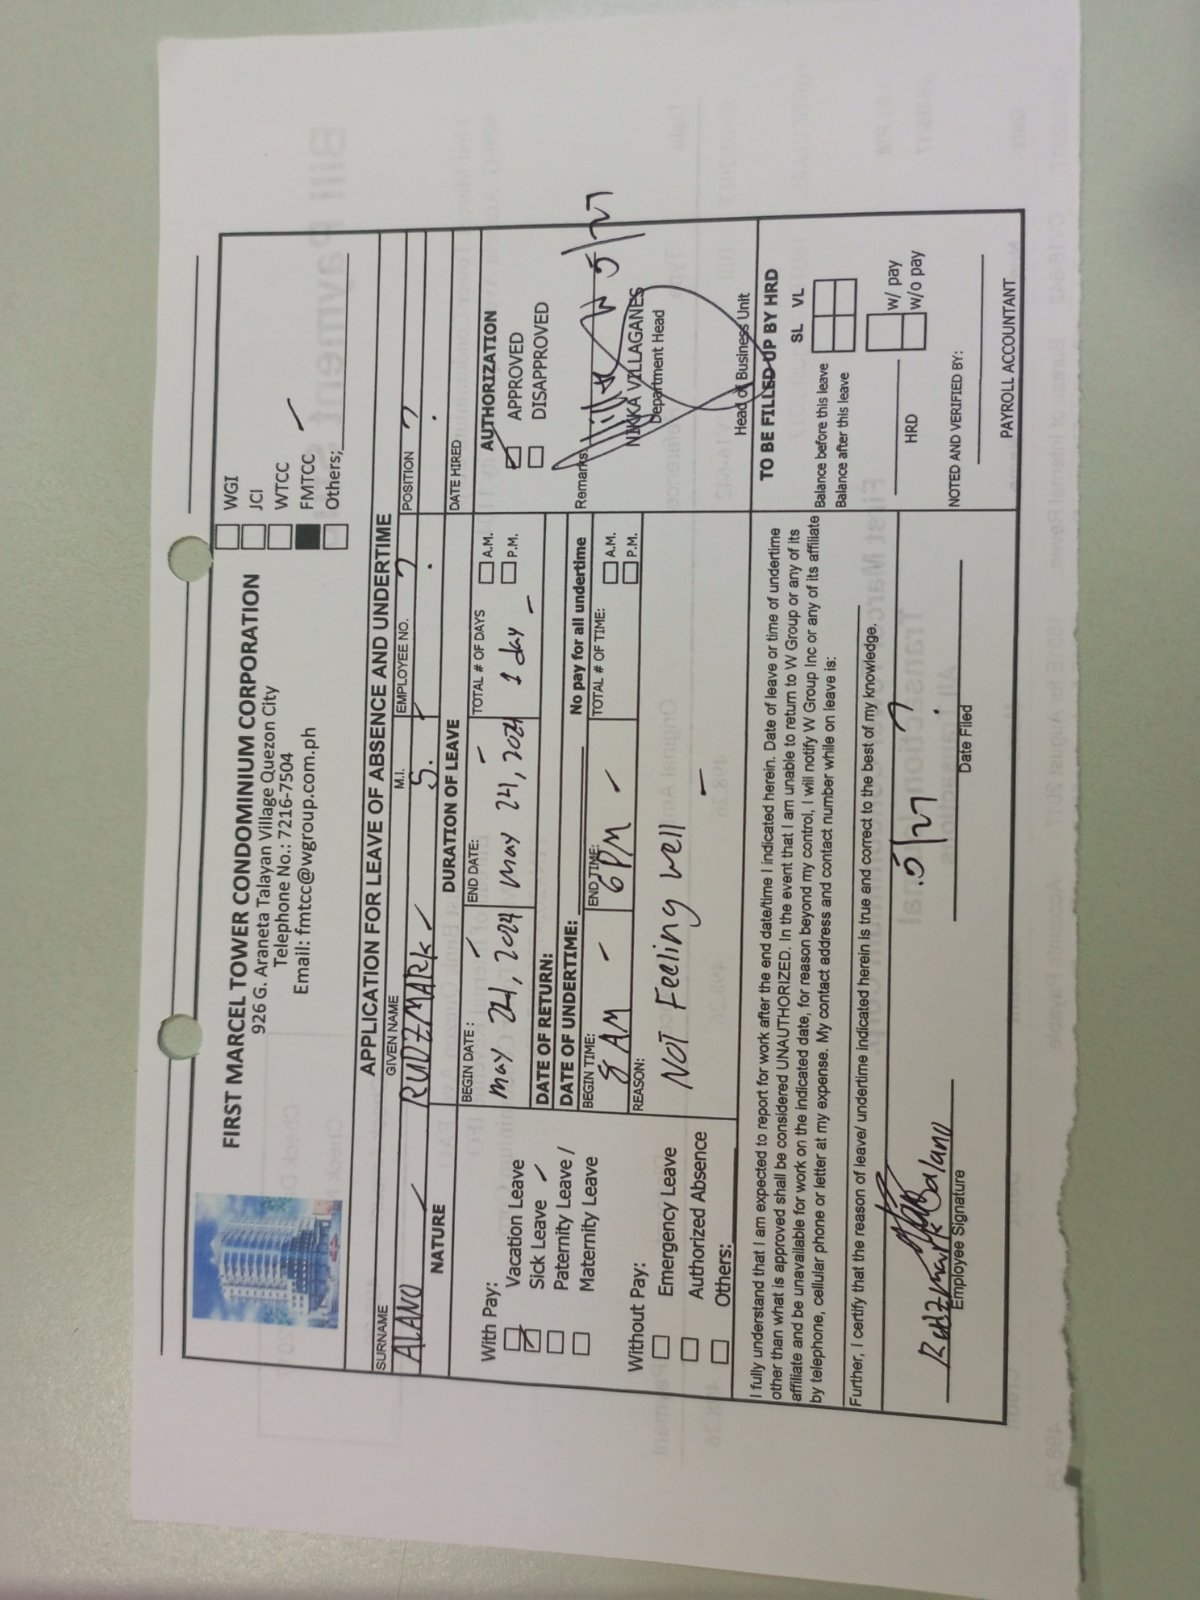 FIRST MARCEL TOWER CONDOMINIUM CORPORATION
926 G. Araneta Talayan Village Quezon City
Telephone No.: 7216-7504
Email: fmtcc@wgroup.com.ph
WGI
JCI
WTCC
FMTCC
Others;
APPLICATION FOR LEAVE OF ABSENCE AND UNDERTIME
SURNAME GIVEN NAME M.I. EMPLOYEE NO. POSITION
ALANO RUDZMARK S. ? ?
NATURE
DURATION OF LEAVE
DATE HIRED
With Pay:
Vacation Leave
Sick Leave
Paternity Leave /
Maternity Leave
Without Pay:
Emergency Leave
Authorized Absence
Others:
BEGIN DATE : END DATE: TOTAL # OF DAYS
may 24, 2024 may 24, 2024 1 day
A.M.
P.M.
DATE OF RETURN:
DATE OF UNDERTIME: No pay for all undertime
BEGIN TIME: END TIME: TOTAL # OF TIME:
8 AM 6 PM
A.M.
P.M.
REASON:
Not Feeling well
AUTHORIZATION
APPROVED
DISAPPROVED
Remarks:
5/27
NIKKA VILLAGANES
Department Head
Head of Business Unit
I fully understand that I am expected to report for work after the end date/time I indicated herein. Date of leave or time of undertime
other than what is approved shall be considered UNAUTHORIZED. In the event that I am unable to return to W Group or any of its
affiliate and be unavailable for work on the indicated date, for reason beyond my control, I will notify W Group Inc or any of its affiliate
by telephone, cellular phone or letter at my expense. My contact address and contact number while on leave is:
Further, I certify that the reason of leave/ undertime indicated herein is true and correct to the best of my knowledge.
Rudzmark Balano
Employee Signature
5/27 ?
Date Filed
TO BE FILLED UP BY HRD
SL VL
Balance before this leave
Balance after this leave
w/ pay
w/o pay
HRD
NOTED AND VERIFIED BY:
PAYROLL ACCOUNTANT